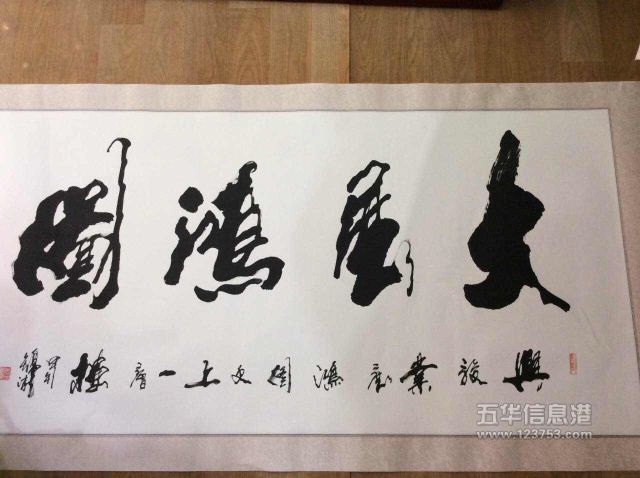 大展鴻圖
興放業彰鴻圖更上一層樓
五华信息港
www.123753.com